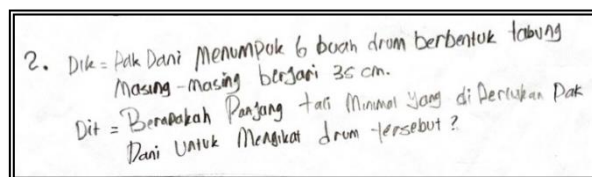 2. Dik = Pak Dani Menumpuk 6 buah drum berbentuk tabung
Masing-masing berjari 35 cm.
Dit = Berapakah Panjang tali Minimal yang di Perlukan Pak
Dani Untuk Mengikat drum tersebut?